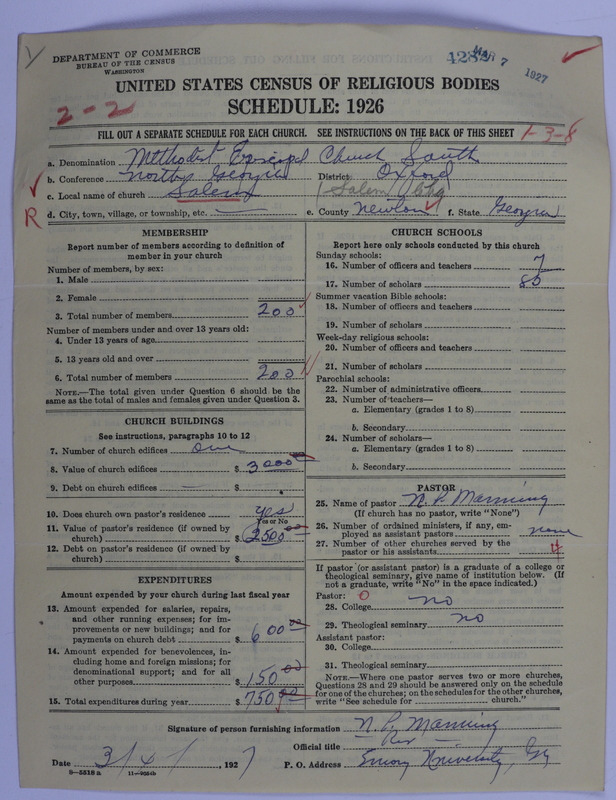 DEPARTMENT OF COMMERCE
BUREAU OF THE CENSUS
WASHINGTON
MAR 7 1927
UNITED STATES CENSUS OF RELIGIOUS BODIES
SCHEDULE: 1926
2-2
FILL OUT A SEPARATE SCHEDULE FOR EACH CHURCH. SEE INSTRUCTIONS ON THE BACK OF THIS SHEET
1-3-8
a. Denomination Methodist Episcopal Church South
b. Conference North Georgia District Oxford
c. Local name of church Salem (Salem Chg
R
d. City, town, village, or township, etc. — e. County Newton f. State Georgia
MEMBERSHIP
Report number of members according to definition of
member in your church
Number of members, by sex:
1. Male
2. Female
3. Total number of members 200
Number of members under and over 13 years old:
4. Under 13 years of age
5. 13 years old and over
6. Total number of members 200
NOTE.—The total given under Question 6 should be the
same as the total of males and females given under Question 3.
CHURCH BUILDINGS
See instructions, paragraphs 10 to 12
7. Number of church edifices one
8. Value of church edifices $ 3000
9. Debt on church edifices — $
10. Does church own pastor's residence yes
Yes or No
11. Value of pastor's residence (if owned by
church) $ 2500
12. Debt on pastor's residence (if owned by
church) $
EXPENDITURES
Amount expended by your church during last fiscal year
13. Amount expended for salaries, repairs,
and other running expenses; for im-
provements or new buildings; and for
payments on church debt $ 600 00
14. Amount expended for benevolences, in-
cluding home and foreign missions; for
denominational support; and for all
other purposes $ 150 00
15. Total expenditures during year $ 750 00
CHURCH SCHOOLS
Report here only schools conducted by this church
Sunday schools:
16. Number of officers and teachers 7
17. Number of scholars 80
Summer vacation Bible schools:
18. Number of officers and teachers
19. Number of scholars
Week-day religious schools:
20. Number of officers and teachers
21. Number of scholars
Parochial schools:
22. Number of administrative officers
23. Number of teachers—
a. Elementary (grades 1 to 8)
b. Secondary
24. Number of scholars—
a. Elementary (grades 1 to 8)
b. Secondary
PASTOR
25. Name of pastor N. P. Manning
(If church has no pastor, write "None")
26. Number of ordained ministers, if any, em-
ployed as assistant pastors none
27. Number of other churches served by the
pastor or his assistants 4
If pastor (or assistant pastor) is a graduate of a college or
theological seminary, give name of institution below. (If
not a graduate, write "No" in the space indicated.)
Pastor: 0
28. College no
29. Theological seminary no
Assistant pastor:
30. College
31. Theological seminary
NOTE.—Where one pastor serves two or more churches,
Questions 28 and 29 should be answered only on the schedule
for one of the churches; on the schedules for the other churches,
write "See schedule for church."
Signature of person furnishing information N. P. Manning
Official title
Date 3/4/, 1927 P. O. Address Emory University, Ga
8—5518 a 11—9084b